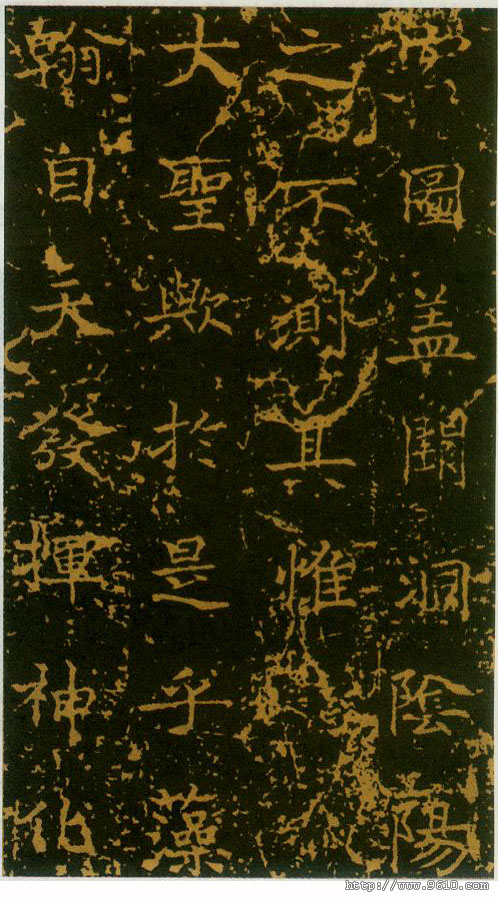 圖盖洞陰陽
之不測其惟
大聖歟於是乎藻
翰自天發揮神化
http://www.9610.com